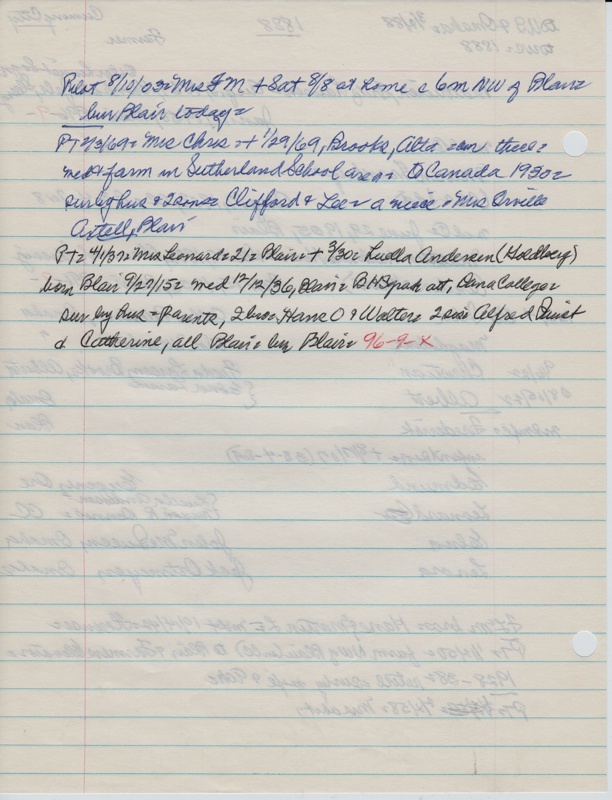 Pilot 8/10/03= Mrs F M + Sat 8/8 at home c 6m NW of Blair=
bur Blair today=
PT 2/3/69= Mrs Chris = + 1/29/69, Brooks, Alta = cem there=
med & farm in Sutherland School area = to Canada 1930=
sur by hus & 2 sons = Clifford & Lee = a niece = Mrs Orville
Axtell, Blair
PT= 4/1/37= Mrs Leonard= 21= Blair= + 3/30= Luella Andersen (Holdberg)
born Blair 9/27/15= med 12/12/36, Blair= BHS grad= att, Dana College=
sur by hus = parents, 2 bro= Hans O & Walter= 2 sis= Alfred
& Catherine, all Blair= bur Blair= 96-9-X